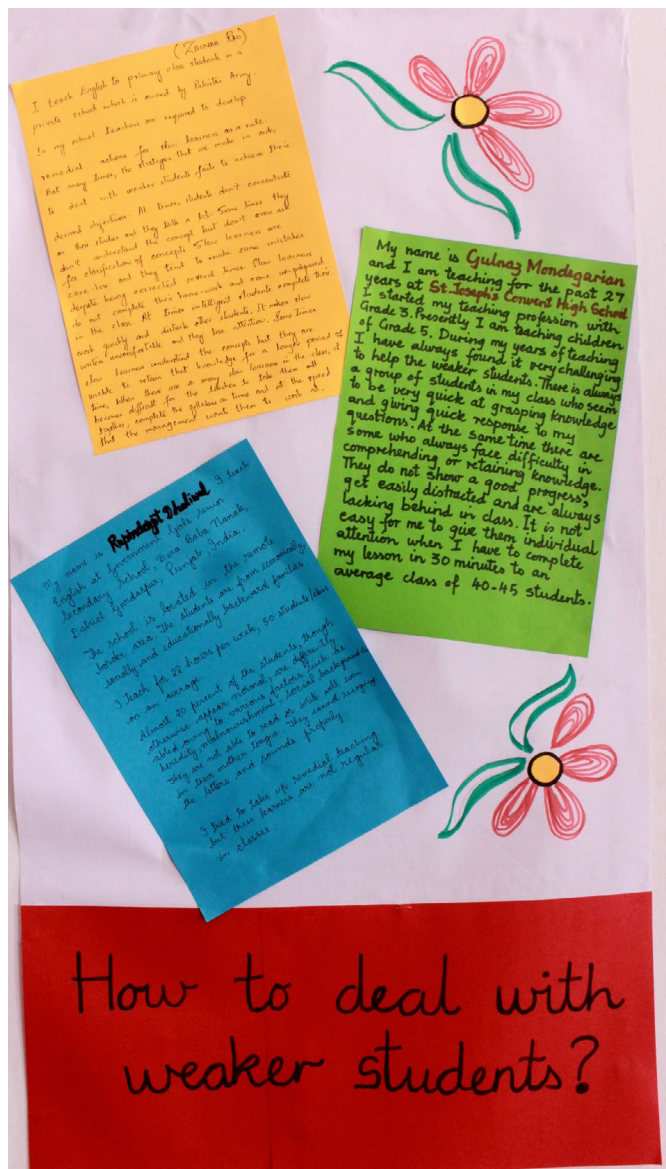 (Zainab Rao)
I teach English to primary class students in a
private school which is owned by Pakistan Army.
In my school teachers are required to develop
remedial actions for slow learners as a rule.
But many times, the strategies that we make in order
to deal with weaker students fails to achieve their
desired objectives. At times, students don't concentrate
on their studies and they talk a lot. Some times they
don't understand the concept but don't even ask
for clarification of concepts. Slow learners are
care-less and they tend to make same mistakes
despite being corrected several times. Slow learners
do not complete their home-work and come un-prepared
in the class. At times intelligent students complete their
work quickly and disturb other students. It makes slow
writers uncomfortable and they lose attention. Some times
slow learners understand the concepts but they are
unable to retain that knowledge for a longer period of
time. When there are so many slow learners in the class, it
becomes difficult for the teacher to take them all
together, complete the syllabus on time and at the speed
that the management want them to work at.
My name is Gulnaz Mondegarian
and I am teaching for the past 27
years at St. Joseph's Convent High School
I started my teaching profession with
Grade 3. Presently I am teaching children
of Grade 5. During my years of teaching
I have always found it very challenging
to help the weaker students. There is always
a group of students in my class who seem
to be very quick at grasping knowledge
and giving quick response to my
questions. At the same time there are
some who always face difficulty in
comprehending or retaining knowledge.
They do not show a good progress,
get easily distracted and are always
lacking behind in class. It is not
easy for me to give them individual
attention when I have to complete
my lesson in 30 minutes to an
average class of 40-45 students.
My name is Rupinderjit Dhaliwal. I teach
English at Government Girls Senior
Secondary School, Dera Baba Nanak,
District Gurdaspur, Punjab, India.
The school is located in the remote
border area. The students are from economically,
socially and educationally backward families.
I teach for 22 hours per week, 50 students/class
on an average.
Almost 20 percent of the students, though
otherwise appear normal, are differently
abled owing to various factors such as
heredity, malnourishment, social background etc.
They are not able to read or write well even
in their mother tongue. They cannot recognize
the letters and sounds properly.
I tried to take up remedial teaching
but these learners are not regular
in classes.
How to deal with
weaker students?